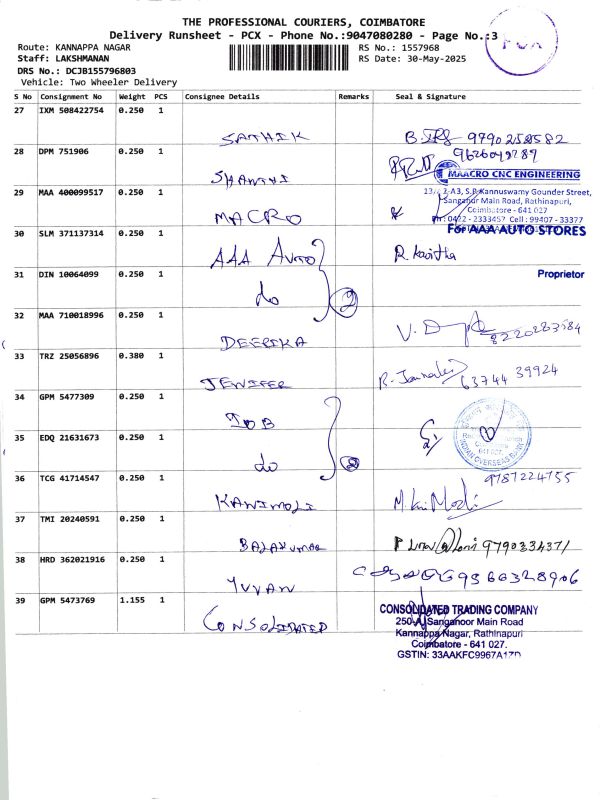 THE PROFESSIONAL COURIERS, COIMBATORE
Delivery Runsheet - PCX - Phone No.:9047080280 - Page No.:3
Route: KANNAPPA NAGAR
RS No.: 1557968
Staff: LAKSHMANAN
RS Date: 30-May-2025
DRS No.: DCJB155796803
Vehicle: Two Wheeler Delivery
S No Consignment No Weight PCS Consignee Details Remarks Seal & Signature
27 IXM 508422754 0.250 1
SATHIK
28 DPM 751906 0.250 1
SHANTHI
MAACRO CNC ENGINEERING
29 MAA 400099517 0.250 1
13/ 2-A3, S.P. Kannuswamy Gounder Street,
Sanganur Main Road, Rathinapuri,
Coimbatore - 641 027
MACRO
Ph: 0422 - 2333457 Cell : 99407 - 33377
30 SLM 371137314 0.250 1
For AAA AUTO STORES
AAA AUTO
R Kavitha
31 DIN 10064099 0.250 1
Proprietor
do 2
32 MAA 710018996 0.250 1
DEEPIKA
33 TRZ 25056896 0.380 1
JENIFER
63744 39924
34 GPM 5477309 0.250 1
IOB
35 EDQ 21631673 0.250 1
INDIAN OVERSEAS BANK
641 027
do 2
36 TCG 41714547 0.250 1
9787224755
KANIMOLI
37 TMI 20240591 0.250 1
BALAKUMAR
9790334371
38 HRD 362021916 0.250 1
YUVAN
39 GPM 5473769 1.155 1
CONSOLIDATED
CONSOLIDATED TRADING COMPANY
250-A, Sanganoor Main Road
Kannappa Nagar, Rathinapuri
Coimbatore - 641 027.
GSTIN: 33AAKFC9967A1ZD